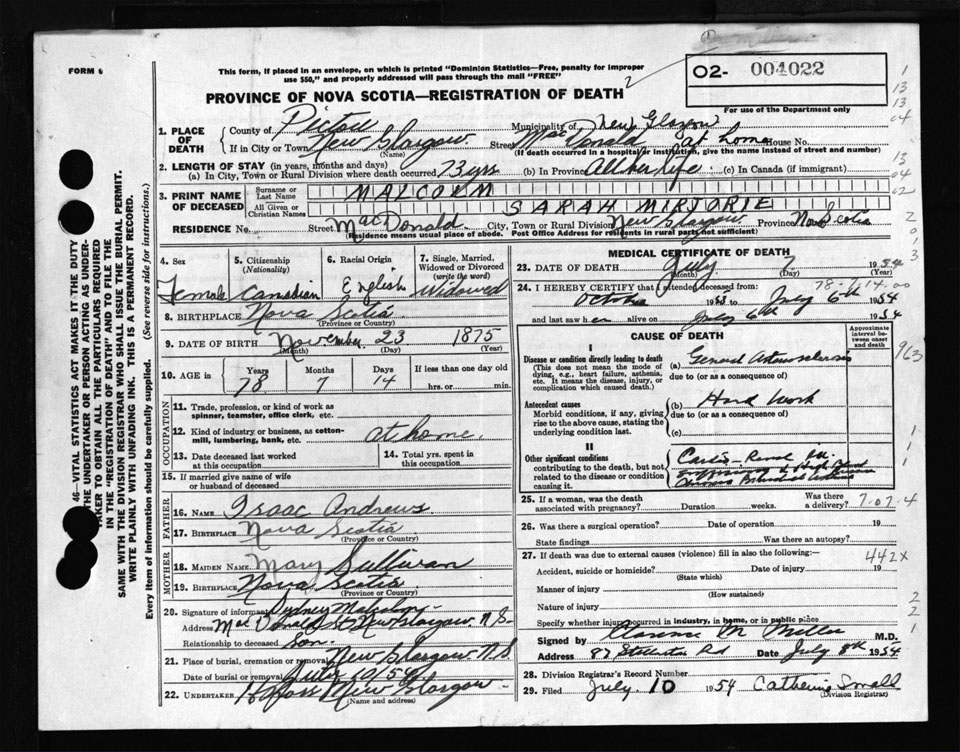 FORM 6
This form, if placed in an envelope, on which is printed "Dominion Statistics—Free, penalty for improper
use $50," and properly addressed will pass through the mail "FREE"
2
O2- 004022
For use of the Department only
PROVINCE OF NOVA SCOTIA—REGISTRATION OF DEATH
1. PLACE OF DEATH
County of Pictou Municipality of New Glasgow
If in City or Town New Glasgow (Name) Street at home House No.
(If death occurred in a hospital or institution, give the name instead of street and number)
2. LENGTH OF STAY (in years, months and days)
(a) In City, Town or Rural Division where death occurred 73 yrs (b) In Province All her life (c) In Canada (if immigrant)
3. PRINT NAME OF DECEASED
Surname or Last Name MALCOLM
All Given or Christian Names SARAH MIRJORIE
RESIDENCE No. Street MacDonald City, Town or Rural Division New Glasgow Province Nova Scotia
(Residence means usual place of abode. Post Office Address for residents in rural parts not sufficient)
4. Sex Female
5. Citizenship (Nationality) Canadian
6. Racial Origin English
7. Single, Married, Widowed or Divorced (write the word) Widowed
8. BIRTHPLACE Nova Scotia
(Province or Country)
9. DATE OF BIRTH November 23 1875
(Month) (Day) (Year)
10. AGE in Years 78 Months 7 Days 14 If less than one day
hrs. or min.
OCCUPATION
11. Trade, profession, or kind of work as
spinner, teamster, office clerk, etc.
12. Kind of industry or business, as cotton-
mill, lumbering, bank, etc. at home.
13. Date deceased last worked
at this occupation
14. Total yrs. spent in
this occupation
15. If married give name of wife
or husband of deceased
FATHER
16. NAME Isaac Andrews
17. BIRTHPLACE Nova Scotia
(Province or Country)
MOTHER
18. MAIDEN NAME Mary Sullivan
19. BIRTHPLACE Nova Scotia
(Province or Country)
20. Signature of informant Sydney Malcolm
Address MacDonald St New Glasgow N.S.
Relationship to deceased Son
21. Place of burial, cremation or removal New Glasgow N.S
Date of burial or removal July 10/54
22. UNDERTAKER New Glasgow
(Name and address)
MEDICAL CERTIFICATE OF DEATH
23. DATE OF DEATH July 7 1954
(Month) (Day) (Year)
78-7-14.00
24. I HEREBY CERTIFY that I attended deceased from:
October 1953 to July 6th 1954
and last saw her alive on July 6th 1954
CAUSE OF DEATH
Approximate interval between onset and death
I
Disease or condition directly leading to death
(This does not mean the mode of dying, e.g., heart failure, asthenia, etc. It means the disease, injury, or complication which caused death.)
(a) General Arteriosclerosis
due to (or as a consequence of)
Antecedent causes
Morbid conditions, if any, giving rise to the above cause, stating the underlying condition last.
(b) Hard Work
due to (or as a consequence of)
(c)
II
Other significant conditions
contributing to the death, but not related to the disease or condition causing it.
25. If a woman, was the death
associated with pregnancy? Duration weeks. Was there a delivery? 7-07.4
26. Was there a surgical operation? Date of operation 19
State findings Was there an autopsy?
27. If death was due to external causes (violence) fill in also the following: 442X
Accident, suicide or homicide? Date of injury 19
(State which)
Manner of injury
(How sustained)
Nature of injury
Specify whether injury occurred in industry, in home, or in public place
Signed by Clarence M Miller M.D.
Address 87 Stellarton Rd Date July 8th 1954
28. Division Registrar's Record Number
29. Filed July 10 1954 Catherine Small
(Division Registrar)
46—VITAL STATISTICS ACT MAKES IT THE DUTY
OF THE UNDERTAKER OR PERSON ACTING AS UNDER-
TAKER TO OBTAIN ALL THE PARTICULARS REQUIRED
IN THE "REGISTRATION OF DEATH" AND TO FILE THE
SAME WITH THE DIVISION REGISTRAR WHO SHALL ISSUE THE BURIAL PERMIT.
WRITE PLAINLY WITH UNFADING INK. THIS IS A PERMANENT RECORD.
Every item of information should be carefully supplied. (See reverse side for instructions.)
1
13
13
04
13
04
02
2
0
1
3
963
1
1
1
2
2
1